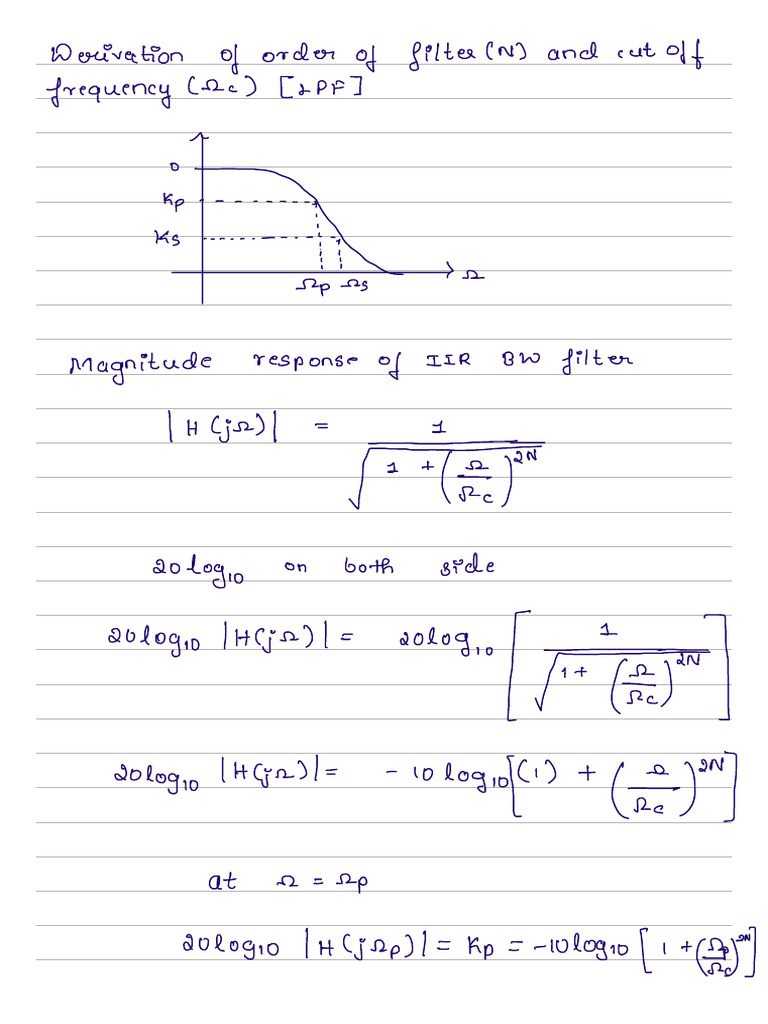 Derivation of order of filter (N) and cut off
frequency (Ωc) [LPF]
0
Kp
Ks
Ω
Ωp Ωs
Magnitude response of IIR BW filter
|H(jΩ)| = 1 / √(1 + (Ω/Ωc)^2N)
20log10 on both side
20log10 |H(jΩ)| = 20log10 [1 / √(1 + (Ω/Ωc)^2N)]
20log10 |H(jΩ)| = -10 log10 [(1) + (Ω/Ωc)^2N]
at Ω = Ωp
20log10 |H(jΩp)| = Kp = -10log10 [1 + (Ωp/Ωc)^2N]